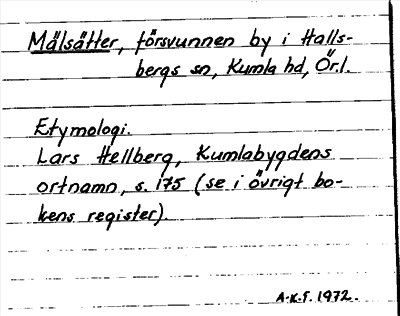 Mälsätter, försvunnen by i Halls-
bergs sn, Kumla hd, Ör.l.
Etymologi.
Lars Hellberg, Kumlabygdens
ortnamn, s. 175 (se i övrigt bo-
kens register).
A.K.T. 1972.